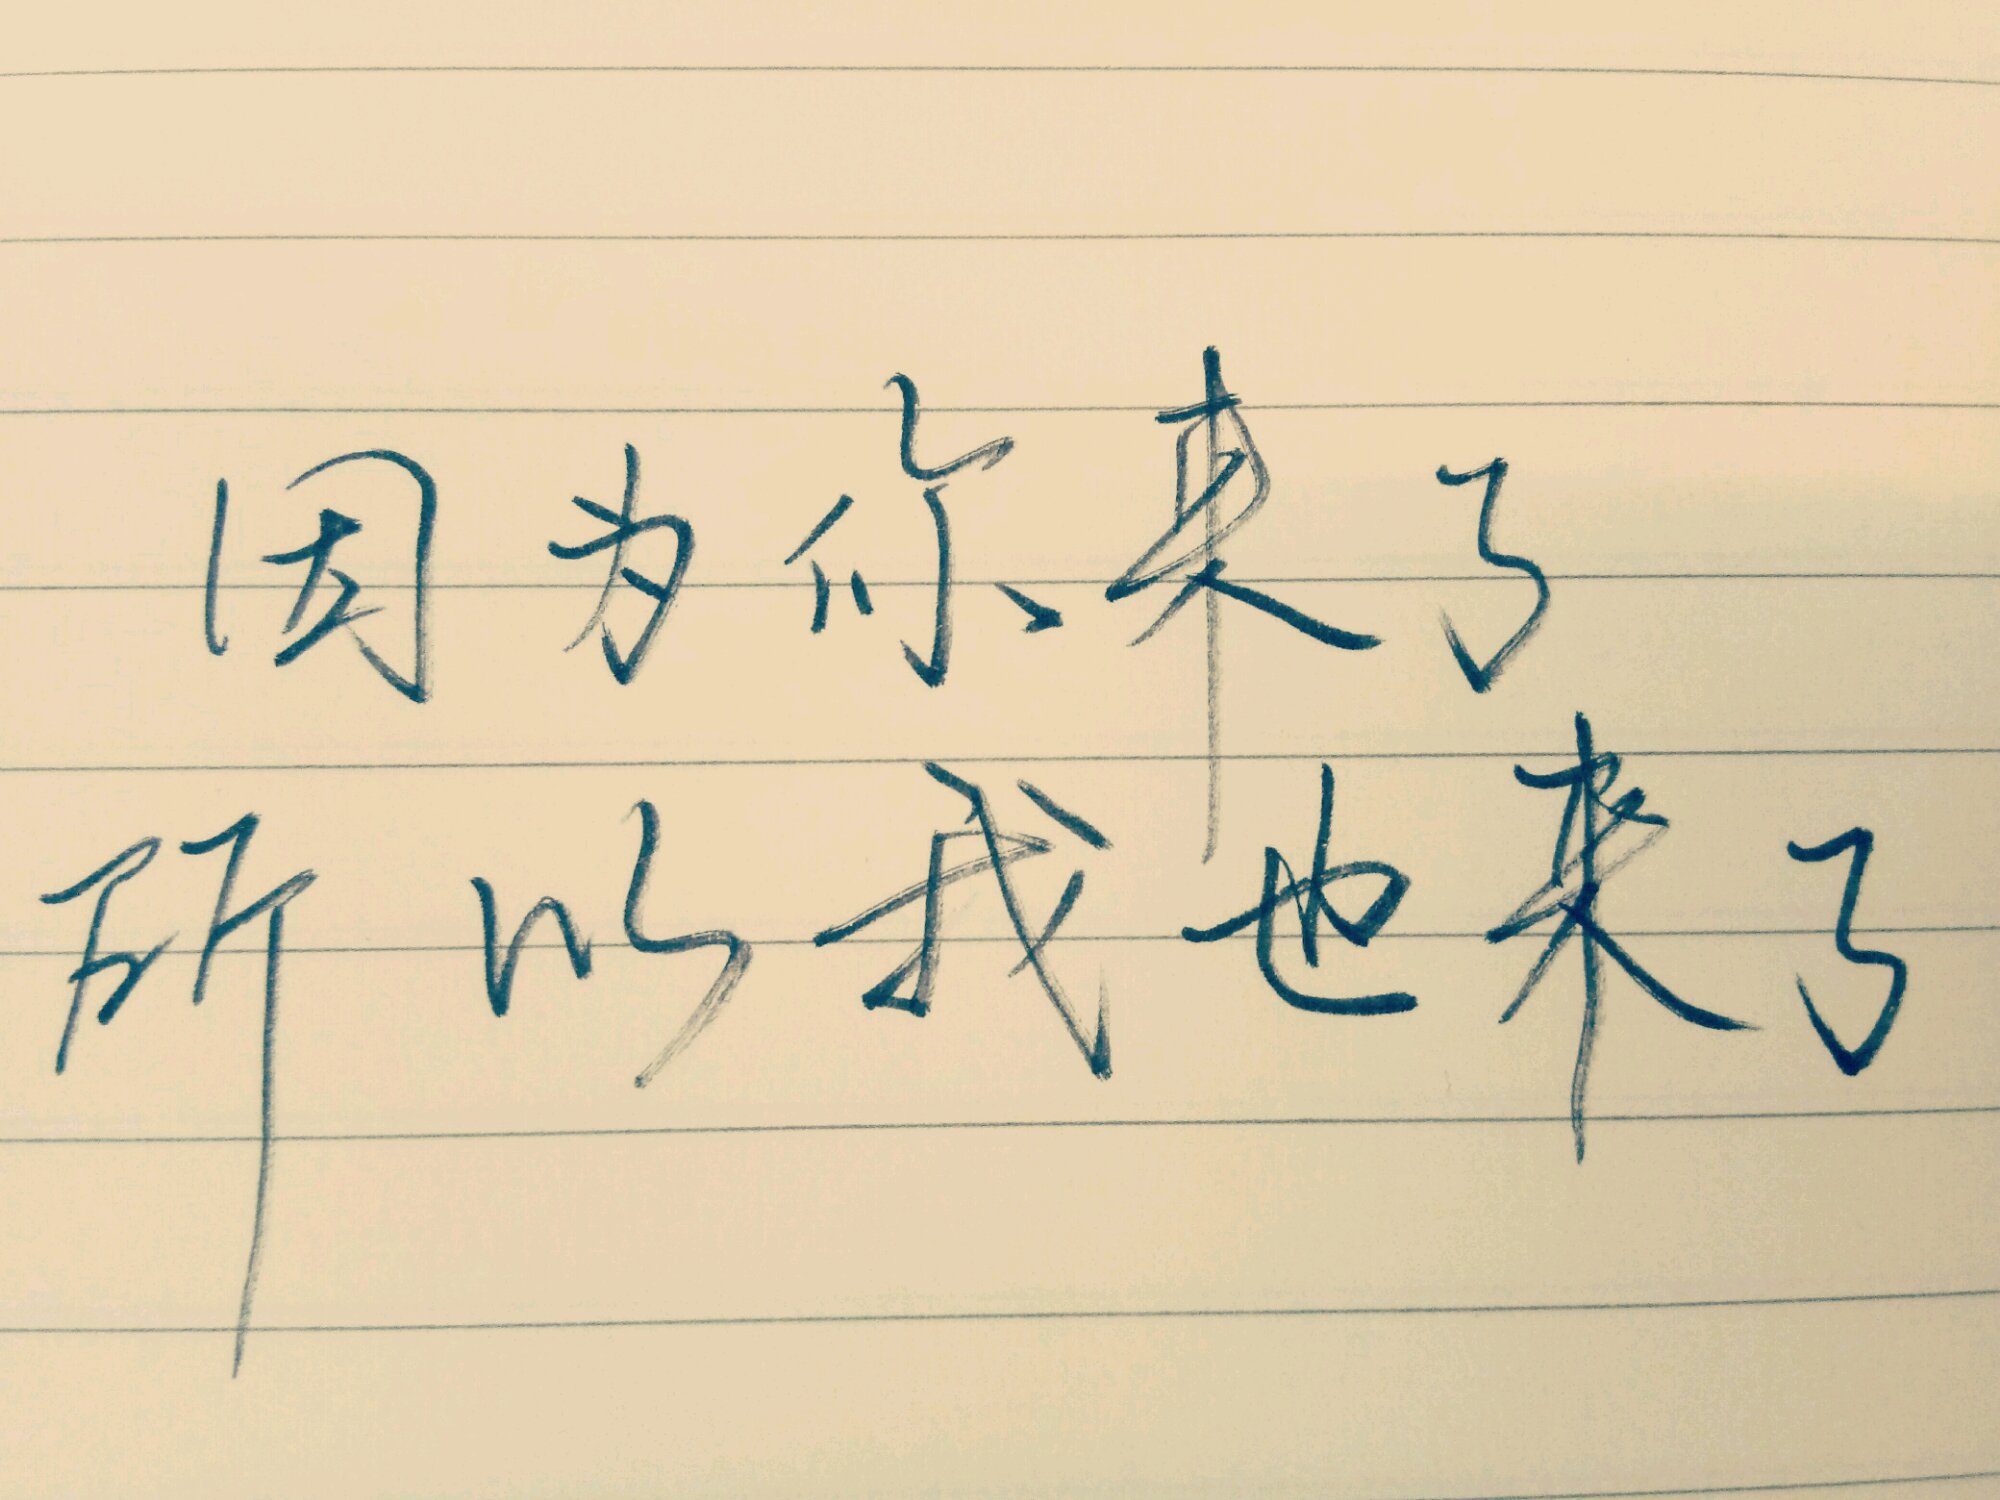 因为你来了
所以我也来了